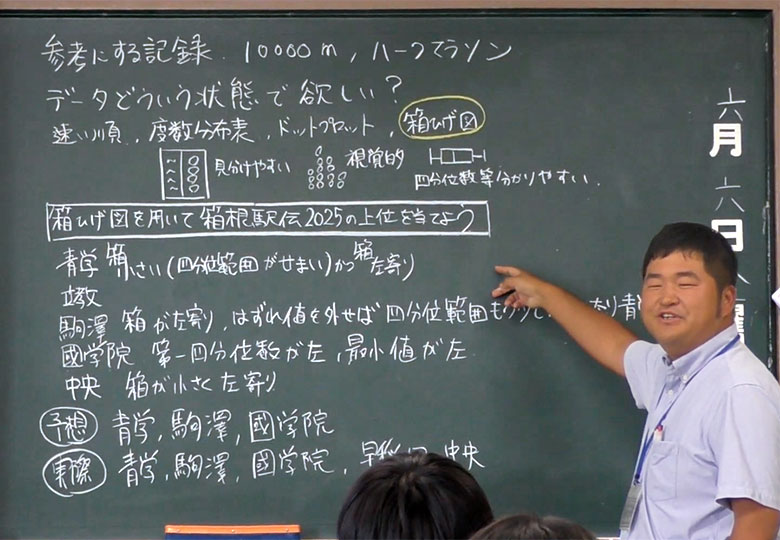 参考にする記録 10000m, ハーフマラソン
データどういう状態で欲しい?
速い順, 度数分布表, ドットプロット, 箱ひげ図
見分けやすい 視覚的 四分位数等分かりやすい.
箱ひげ図を用いて箱根駅伝2025の上位を当てよう
青学 箱小さい(四分位範囲がせまい)かつ箱左寄り
立教
駒澤 箱が左寄り, はずれ値を外せば四分位範囲も
國学院 第一四分位数が左, 最小値が左
中央 箱が小さく左寄り
予想 青学, 駒澤, 國学院
実際 青学, 駒澤, 國学院, 早 中央
六月六日